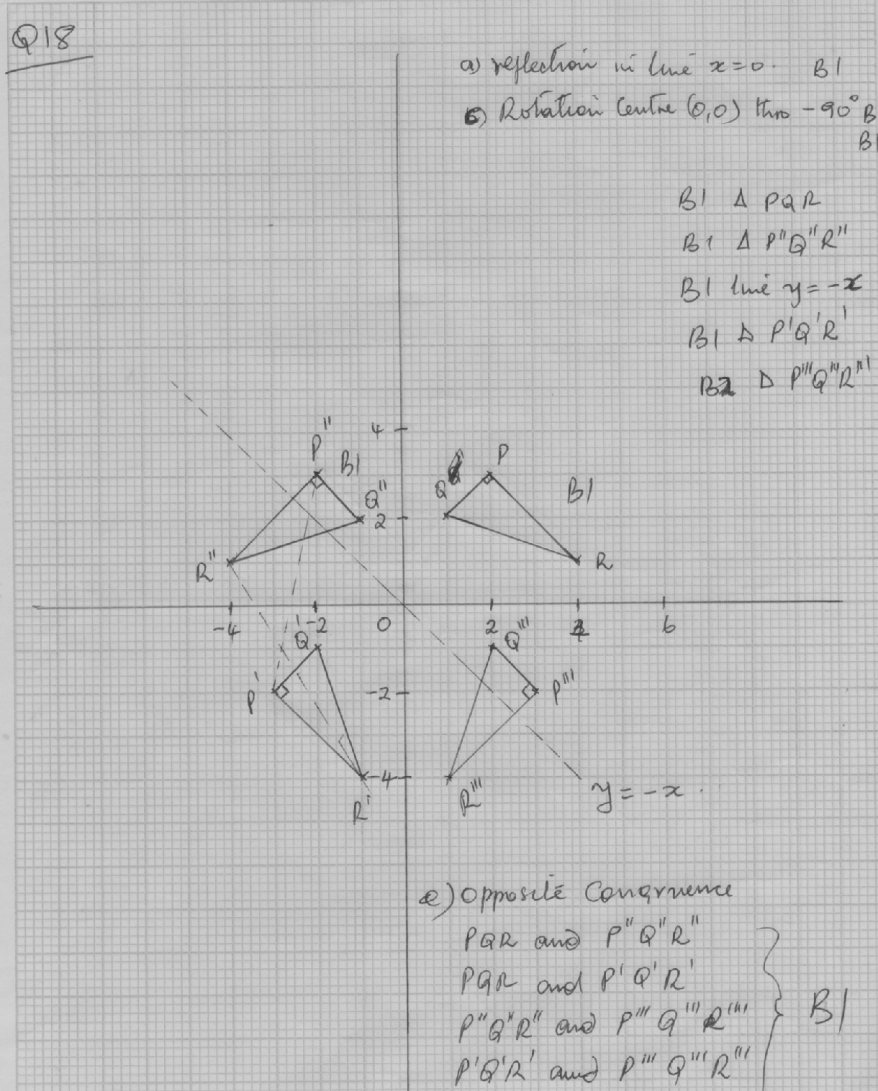 Q18
a) reflection in line x=0. B1
b) Rotation Centre (0,0) thro -90° B
B1
B1 Δ PQR
B1 Δ P"Q"R"
B1 line y = -x
B1 Δ P'Q'R'
B2 Δ P'''Q'''R'''
4
P" B1
P
Q"
Q
B1
2
R"
R
-4 -2 0 2 4 6
Q'
Q'''
P'
-2
P'''
-4
R'
R'''
y = -x.
e) Opposite Congruence
PQR and P"Q"R"
PQR and P'Q'R'
P"Q"R" and P''' Q''' R''''
P'Q'R' and P''' Q''' R'''
B1